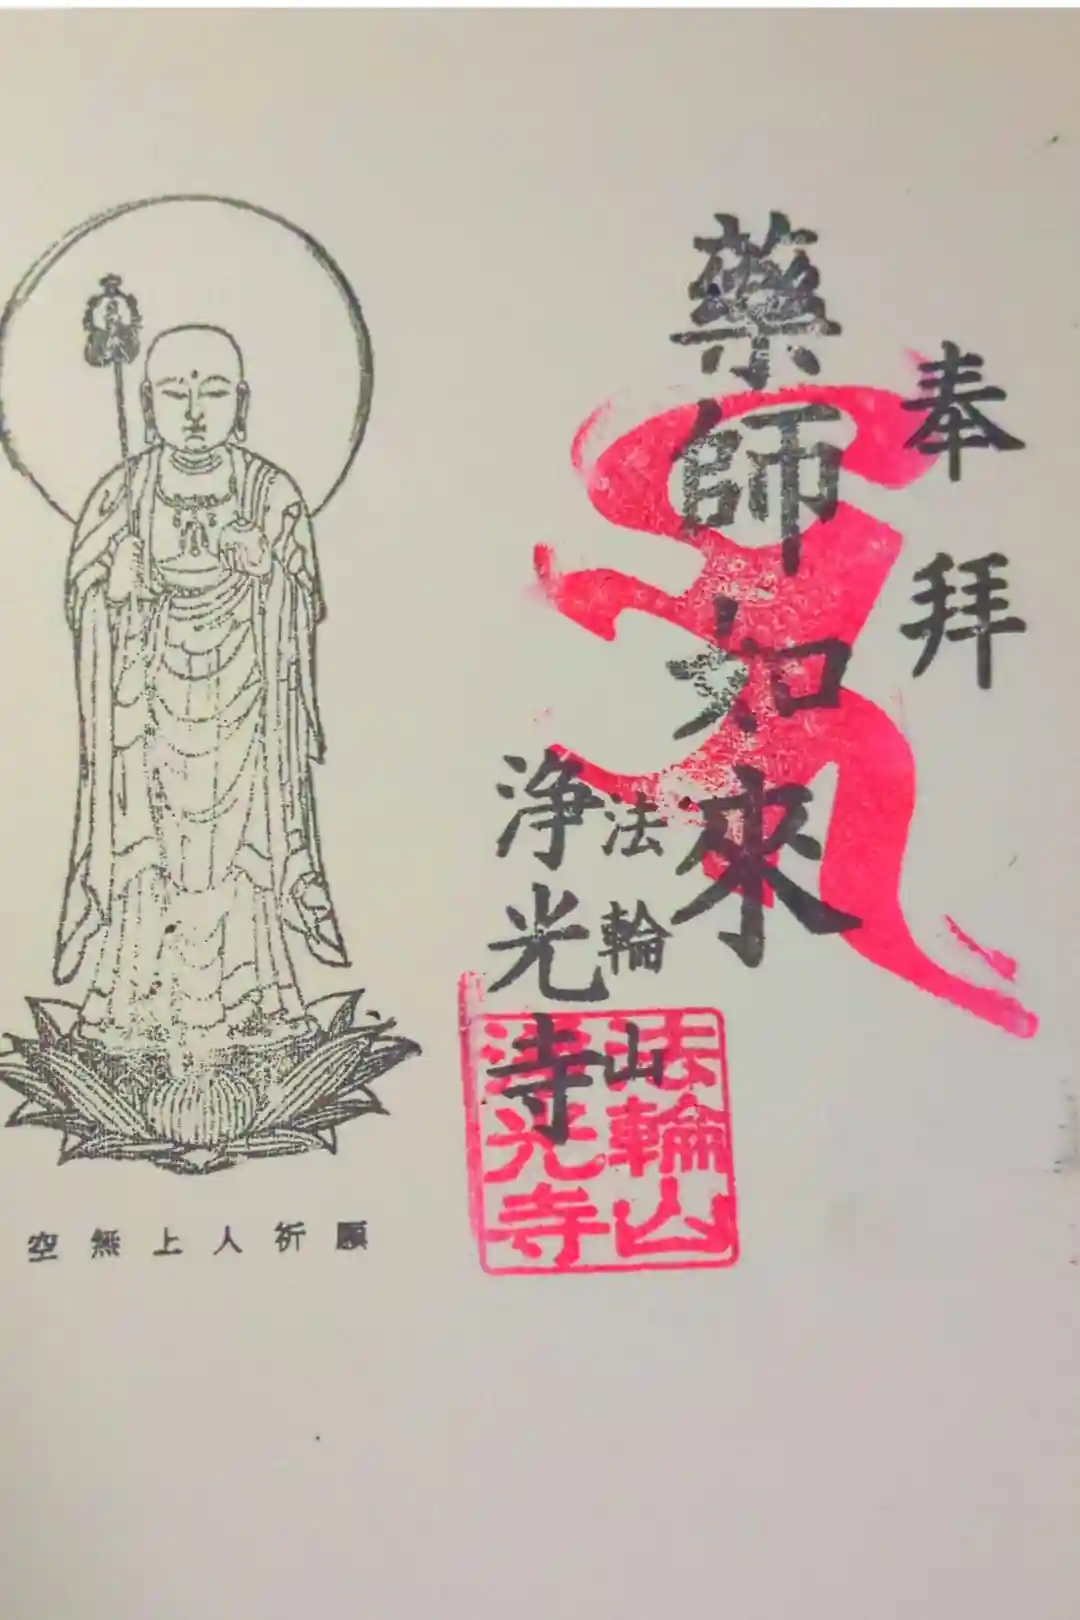 奉拜
藥師如來
法輪山
浄光寺
法輪山
浄光寺
空無上人祈願